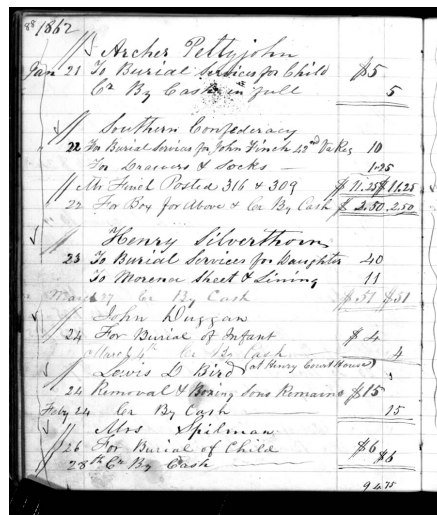 88 1862
Archer Pettyjohn
Jan 21 To Burial Services for Child $5
Cr By Cash in full 5
Southern Confederacy
22 For Burial Services for John Finch 42nd Va Reg 10
For Drawers & Socks — 1.25
Mr Finch Posted 316 & 309 $11.25 $11.25
22 For Box for Above & Cr By Cash $2.50 2.50
Henry Silverthorn
23 To Burial Services for Daughter 40
To Morena Sheet & Lining 11
March 27 Cr By Cash $51 $51
John Duggan
24 For Burial of Infant $4
March 4th Cr By Cash — 4
Lewis D Bird (at Henry Court House)
24 Removal & Boxing Sons Remains $15
Feby 24 Cr By Cash — 15
Mrs Spilman
26 For Burial of Child $6
28th Cr By Cash — $6
94.75